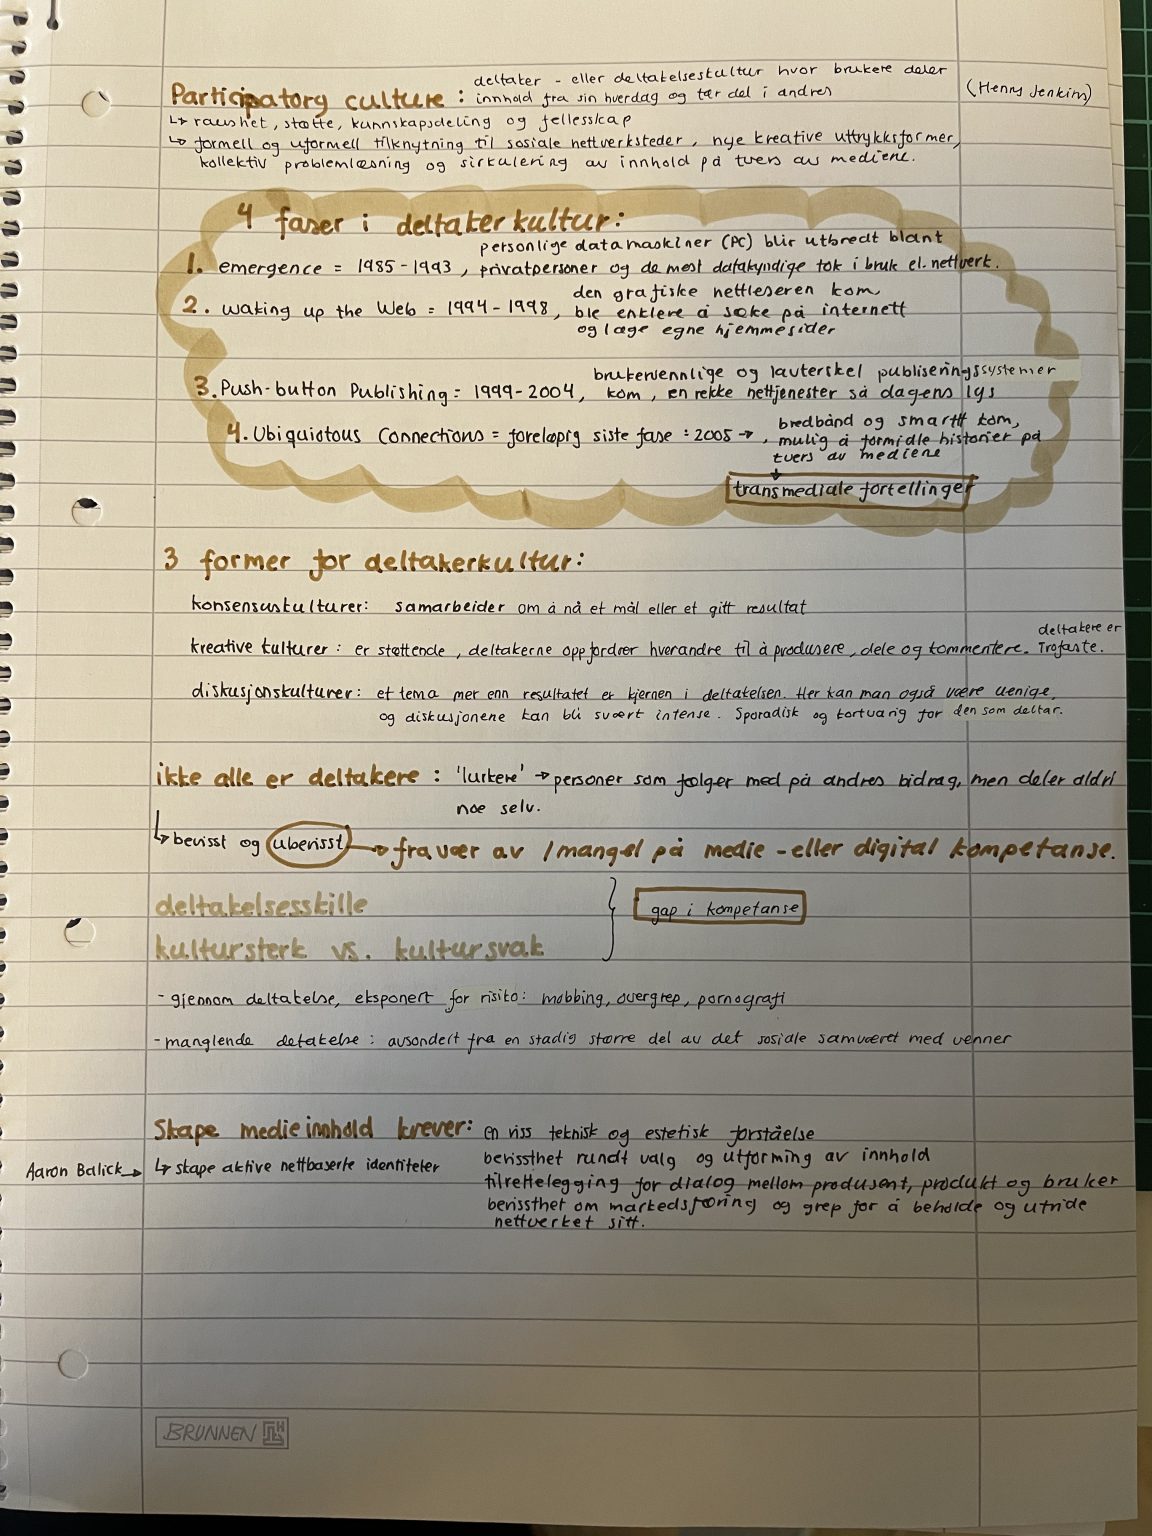 deltaker - eller deltakelseskultur hvor brukere deler
Participatory culture : innhold fra sin hverdag og tar del i andres (Henry Jenkins)
↳ raushet, støtte, kunnskapsdeling og fellesskap
↳ formell og uformell tilknytning til sosiale nettverksteder, nye kreative uttrykksformer,
kollektiv problemløsning og sirkulering av innhold på tvers av mediene.
4 faser i deltakerkultur:
personlige datamaskiner (PC) blir utbredt blant
1. emergence = 1985-1993, privatpersoner og de mest datakyndige tok i bruk el. nettverk.
den grafiske nettleseren kom,
2. waking up the Web = 1994-1998, ble enklere å søke på internett
og lage egne hjemmesider
brukervennlige og lavterskel publiseringssystemer
3. Push-button Publishing = 1999-2004, kom, en rekke nettjenester så dagens lys
bredbånd og smarttf kom,
4. Ubiquiotous Connections = foreløpig siste fase : 2005 →, mulig å formidle historier på
tvers av mediene
↓
transmediale fortellinger
3 former for deltakerkultur:
konsensuskulturer: samarbeider om å nå et mål eller et gitt resultat
deltakere er
kreative kulturer : er støttende, deltakerne oppfordrer hverandre til å produsere, dele og kommentere. Trofaste.
diskusjonskulturer: et tema mer enn resultatet er kjernen i deltakelsen. Her kan man også være uenige,
og diskusjonene kan bli svært intense. Sporadisk og kortvarig for den som deltar.
ikke alle er deltakere : 'lurkere' → personer som følger med på andres bidrag, men deler aldri
noe selv.
↳ bevisst og ubevisst → fravær av / mangel på medie - eller digital kompetanse.
deltakelsesskille
gap i kompetanse
kultursterk vs. kultursvak
- gjennom deltakelse, eksponert for risiko: mobbing, overgrep, pornografi
- manglende detakelse : avsondert fra en stadig større del av det sosiale samværet med venner
Skape medieinnhold krever: en viss teknisk og estetisk forståelse
bevissthet rundt valg og utforming av innhold
Aaron Balick → ↳ skape aktive nettbaserte identiteter
tilrettelegging for dialog mellom produsent, produkt og bruker
bevissthet om markedsføring og grep for å beholde og utvide
nettverket sitt.
BRUNNEN